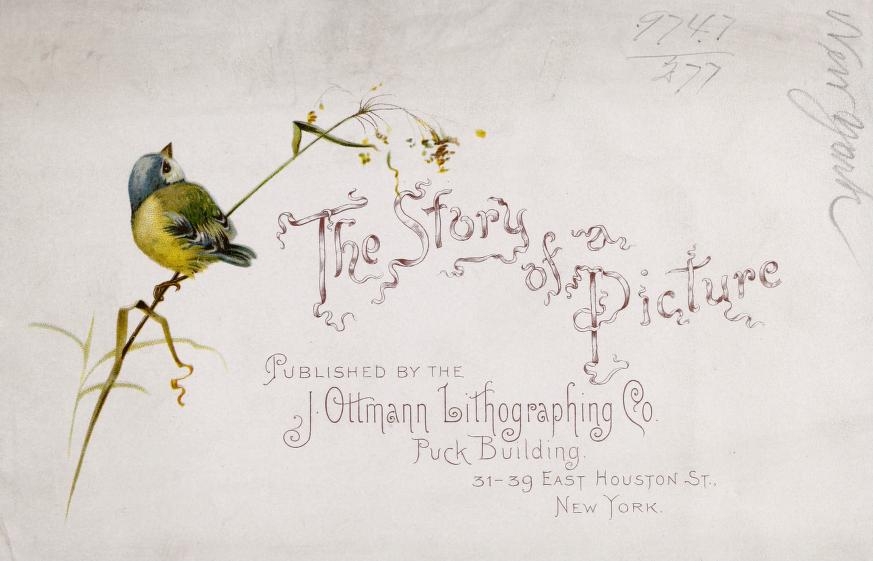 974.7
277
New York
The Story
of a
Picture
PUBLISHED BY THE
J. Ottmann Lithographing Co.
Puck Building.
31-39 EAST HOUSTON ST.,
NEW YORK.